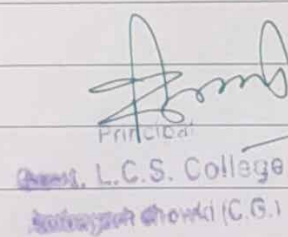 Principal
Govt. L.C.S. College
Chowki (C.G.)